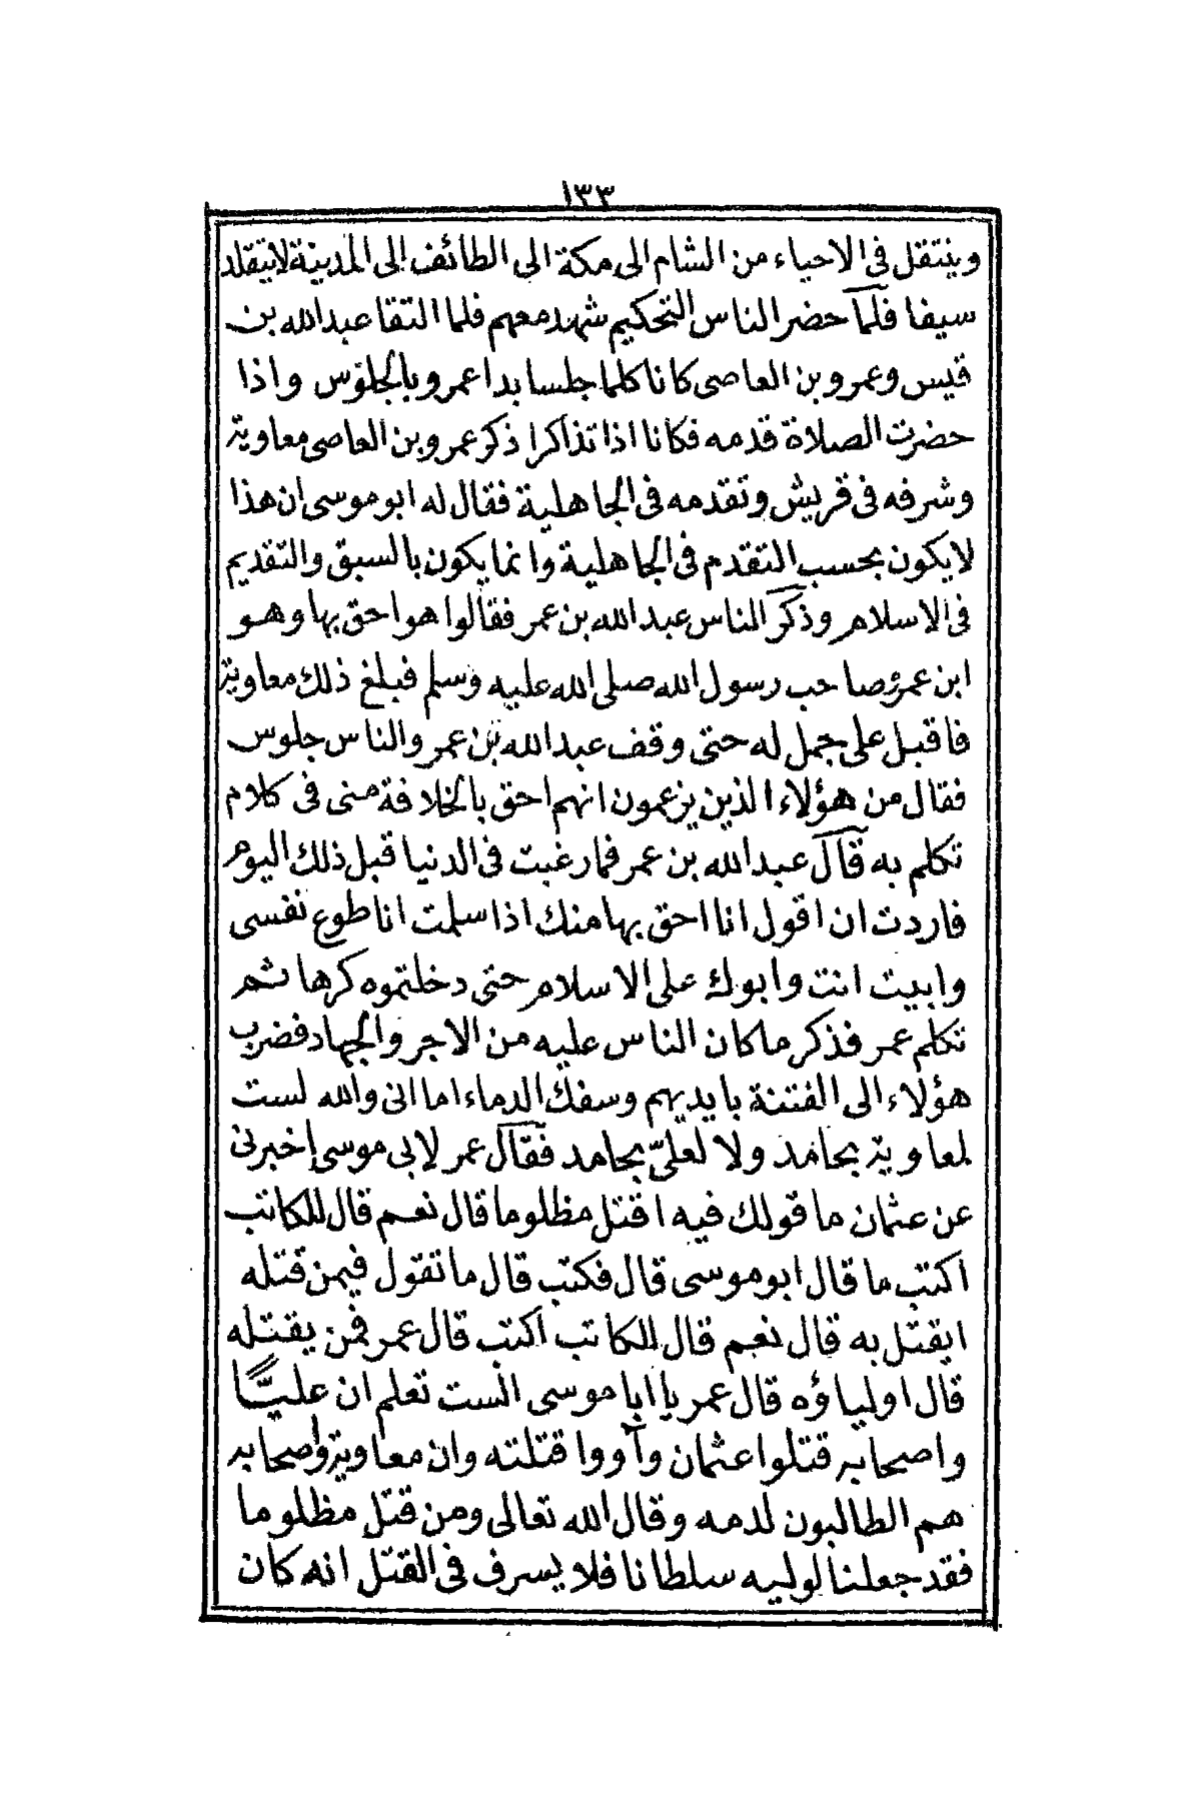 ١٣٣
وينتقل فى الاحياء من الشام الى مكة الى الطائف الى المدينة لا يتقلد
سيفا فلما حضر الناس التحكيم شهد معهم فلما التقا عبد الله بن
قيس وعمرو بن العاصى كانا كلما جلسا بدا عمرو بالجلوس واذا
حضرت الصلاة قدمه فكانا اذا تذاكرا ذكر عمرو بن العاصى معاوية
وشرفه فى قريش وتقدمه فى الجاهلية فقال له ابو موسى ان هذا
لا يكون بحسب التقدم فى الجاهلية وانما يكون بالسبق والتقديم
فى الاسلام وذكر الناس عبد الله بن عمر فقالوا هو احق بها وهو
ابن عمر وصاحب رسول الله صلى الله عليه وسلم فبلغ ذلك معاوية
فاقبل على جمل له حتى وقف عبد الله بن عمر والناس جلوس
فقال من هؤلاء الذين يزعمون انهم احق بالخلافة منى فى كلام
تكلم به قال عبد الله بن عمر فما رغبت فى الدنيا قبل ذلك اليوم
فاردت ان اقول انا احق بها منك اذا سلمت انا طوع نفسى
وابيت انت وابوك على الاسلام حتى دخلتموه كرها ثم
تكلم عمر فذكر ما كان الناس عليه من الاجر والجهاد فضرب
هؤلاء الى الفتنة بايديهم وسفك الدماء اما انى والله لست
لمعاوية بحامد ولا لعلىّ بحامد فقال عمر لابى موسى إخبرنى
عن عثمان ما قولك فيه اقتل مظلوما قال نعم قال للكاتب
اكتب ما قال ابو موسى قال فكتب قال ما تقول فيمن قتله
ايقتل به قال نعم قال للكاتب اكتب قال عمر فمن يقتله
قال اولياؤه قال عمر يا ابا موسى الست تعلم ان عليًّا
واصحابه قتلوا عثمان وآووا قتلته وان معاوية واصحابه
هم الطالبون لدمه وقال الله تعالى ومن قتل مظلوما
فقد جعلنا لوليه سلطانا فلا يسرف فى القتل انه كان